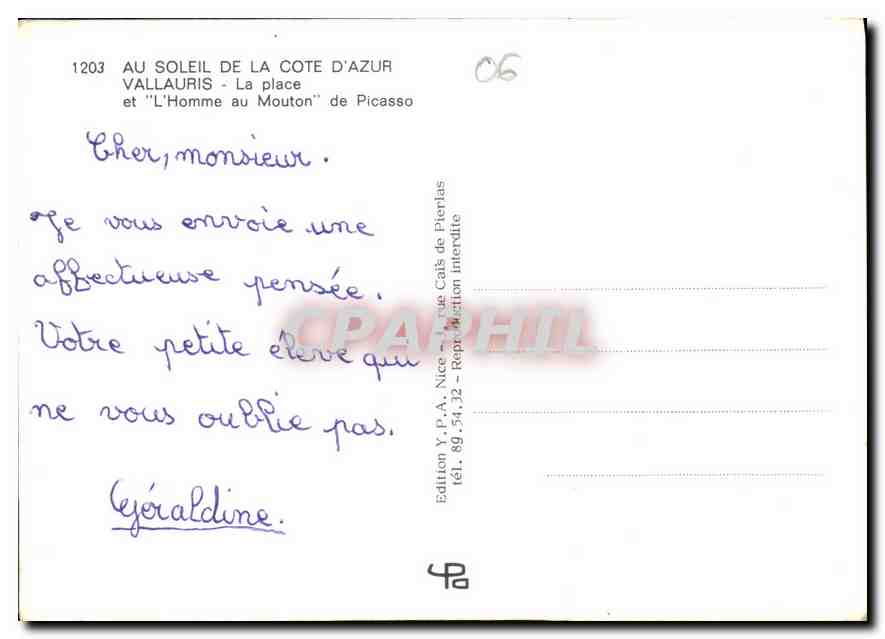 1203 AU SOLEIL DE LA COTE D'AZUR
VALLAURIS - La place
et "L'Homme au Mouton" de Picasso
06
Cher, monsieur.
Je vous envoie une
affectueuse pensée.
Votre petite élève qui
ne vous oublie pas.
Géraldine.
Edition Y.P.A. Nice - rue Caïs de Pierlas
tél. 89.54.32 - Reproduction interdite
CPAPHIL